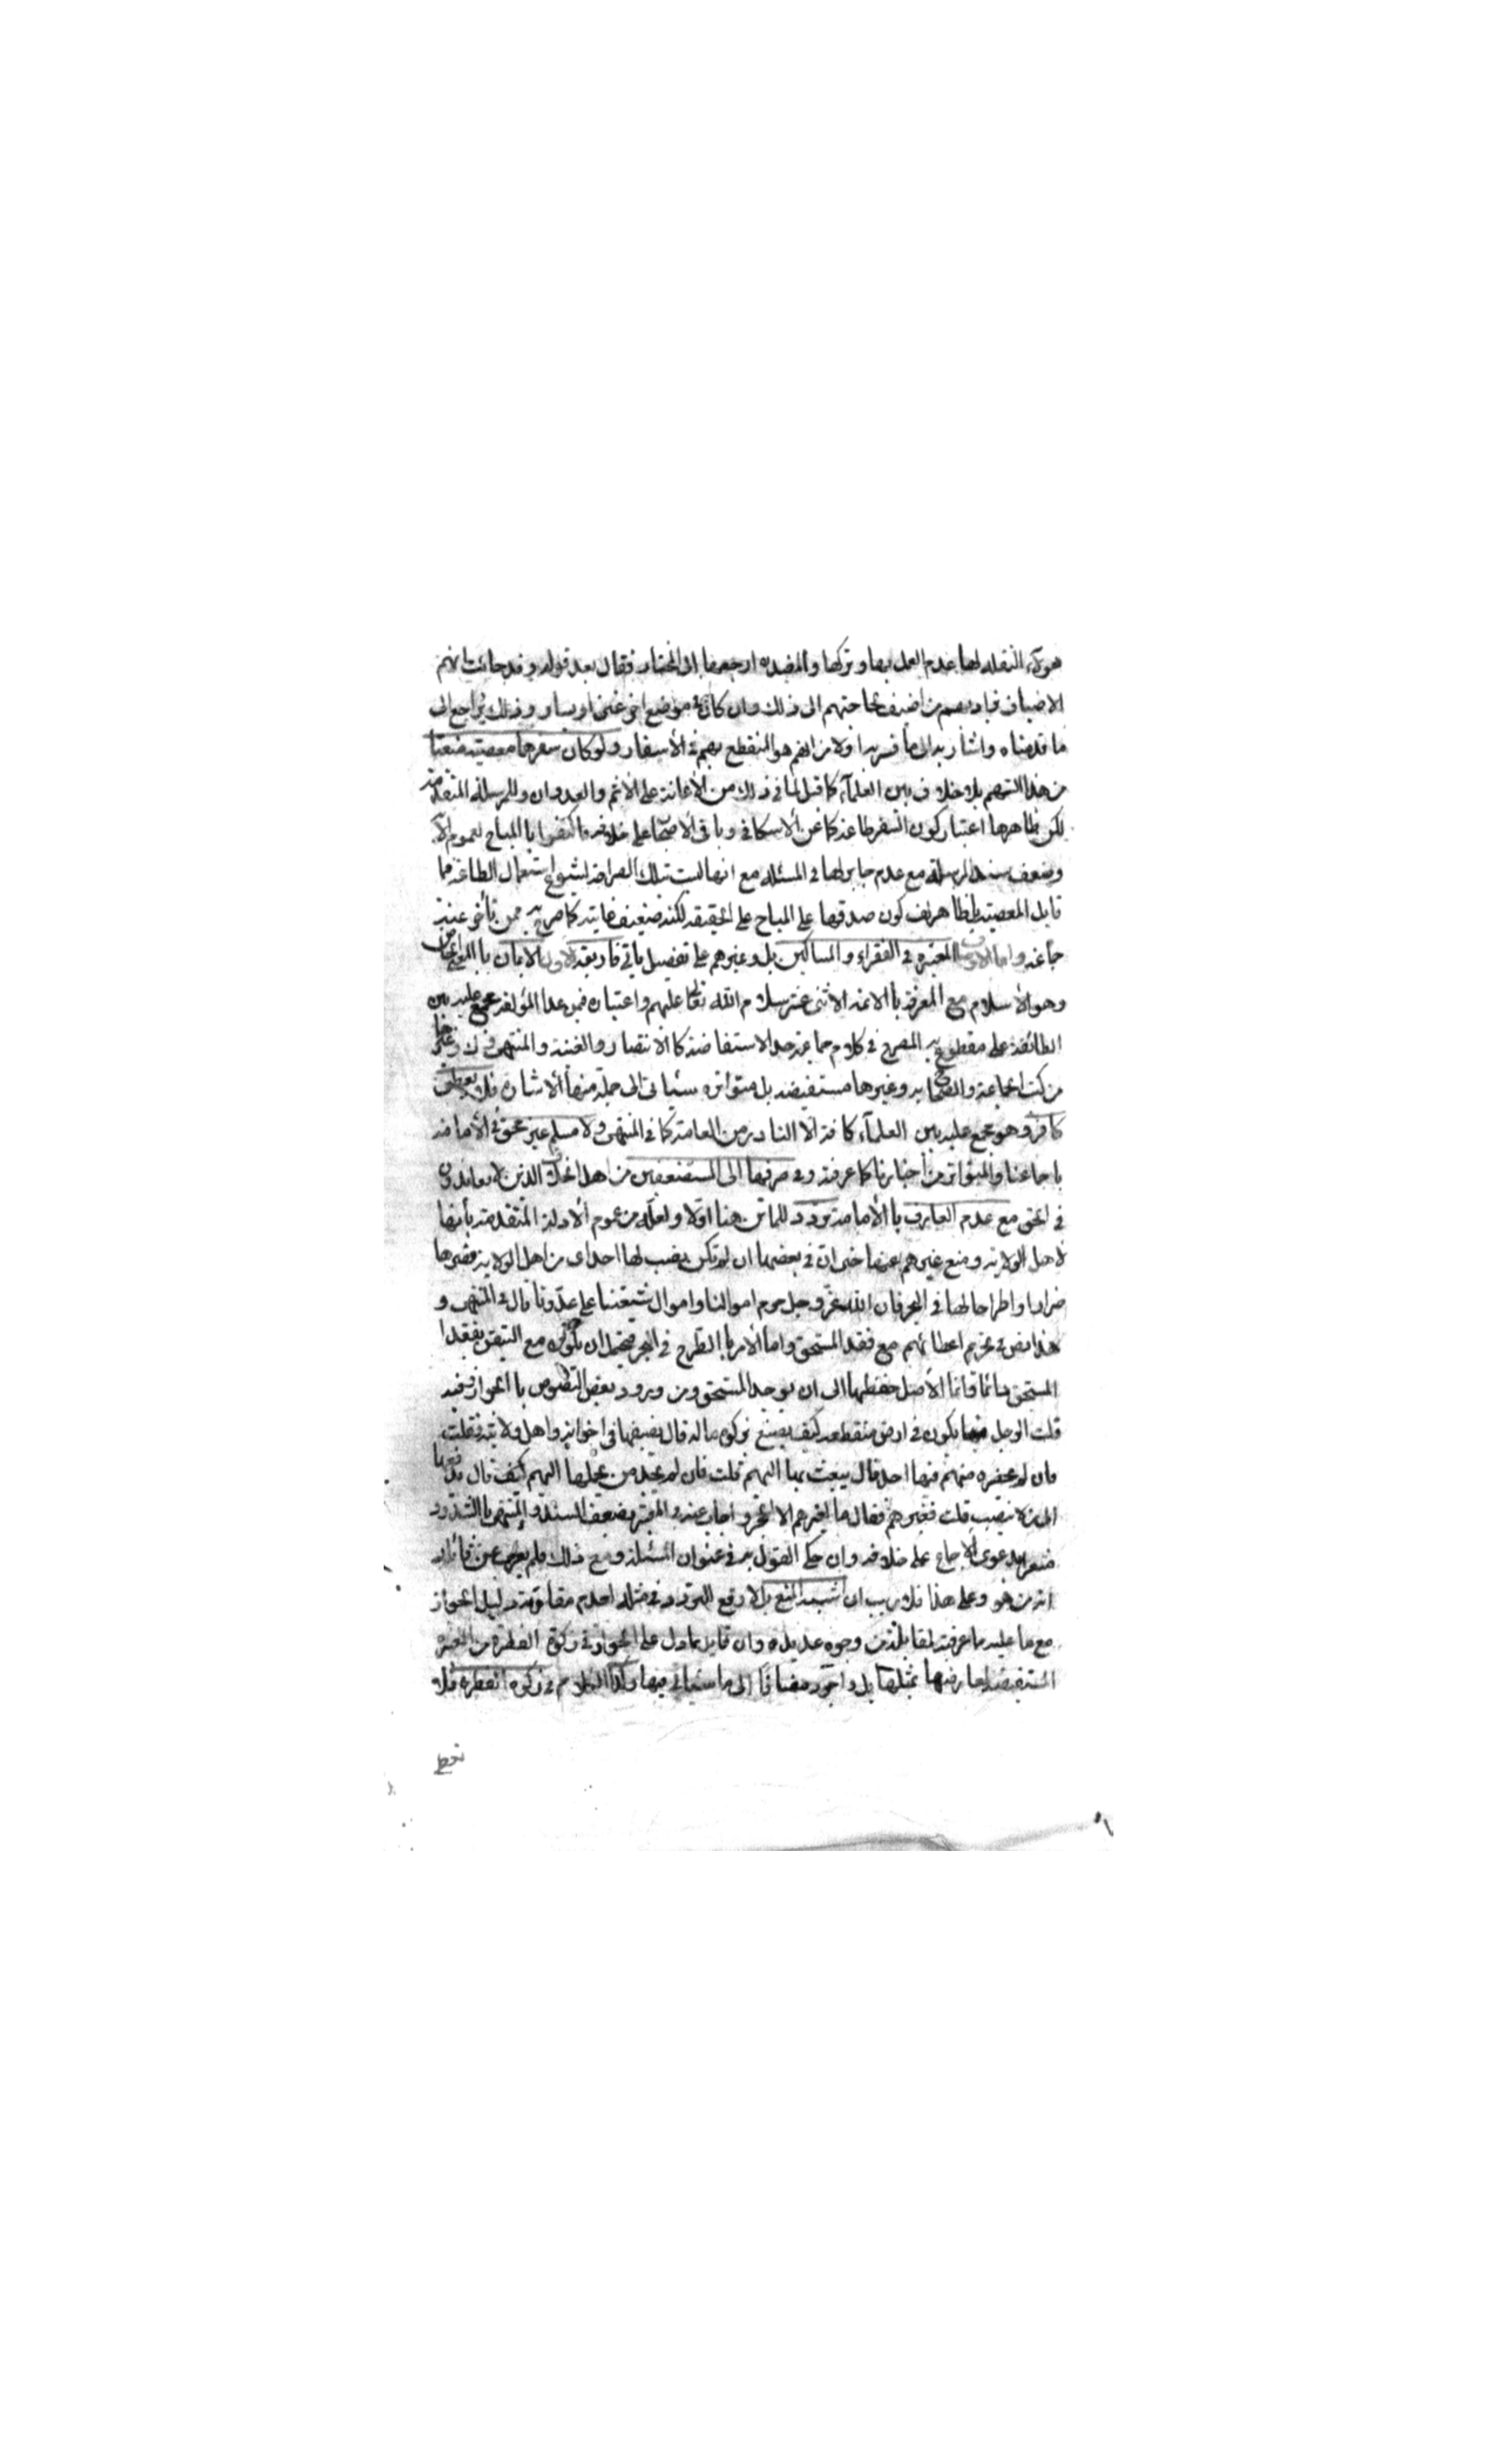 هؤلاء النقلة لها عدم العمل بها وتركها والمفيد ره ارجعها الى المختار فقال بعد قوله وقد جائت انهم
الاضياف فباد بهم من اضيف لحاجتهم الى ذلك وان كان له في موضع اخر غنى او يسار وذلك راجع الى
ما قدمناه واشار به الى ما فسر به اولا من انهم هو المنقطع بهم في الأسفار ولو كان سفرهما معصية منعتا
من هذا السهم بلا خلاف بين العلمآء كما قيل لما في ذلك من الأعانة على الأثم والعدوان وللمرسلة المتقدمة
لكن ظاهرها اعتبار كون السفر طاعة كما عن ألاسكافي وباقي الأصحاب على خلافه فاكتفوا با المباح لعموم الآية
وضعف سند المرسلة مع عدم جابر لها في المسئلة مع انها ليست بتلك الصراحة لشيوع استعمال الطاعة فيما
قابل المعصية بل ظاهر كون صدقها على المباح على الحقيقة لكنه ضعيف غايته كما صرح به ممن تأخر عنه
جماعة واما الاوصاف المعتبرة في الفقراء والمساكين بل وغيرهم على تفصيل يأتي فاربعة الاول الايمان با المعنى الخاص
وهو الأسلام مع المعرفة با الائمة الاثنى عشر سلام الله تعالى عليهم واعتباره فيمن عدا المؤلفة مجمع عليه بين
الطائفة على مقطوع به المصرح في كلام جماعة حد الاستفاضة كا الانتصار والغنية والمنتهى وك وغيرها
من كتب الجماعة والصحاح به وغيرها مستفيضة بل متواترة سيأتي الى جملة منها ألاشارة فلا يعطى
كافر وهو مجمع عليه بين العلمآء كافة الّا النادر من العامة كما في المنتهى ولا مسلم غير محق في الأمامة
باجماعنا والمتواتر من أخبارنا كما عرفته وفي صرفها الى المستضعفين من اهل الخلاف الذين لا يعاندون
في الحق مع عدم العارف با الأمامة تردد للماتن هنا اولا ولعله من عموم ألادلة المتقدمة بأنها
لاهل الولاية ومنع غيرهم عنها حتى ان في بعضها ان لم تكن يصب لها احدا من اهل الولاية فصرها
صررا واطرحها في البحر فان الله عز وجل حرم اموالنا واموال شيعتنا على عدونا قال في المنتهى و
هذا نص في تحريم اعطائهم مع فقد المستحق واما ألامر با الطرح في البحر فيحتمل ان يكون مع التيقن بفقد
المستحق دائما فانما الأصل حفظها الى ان يوجد المستحق ومن ورود بعض النصوص با الجواز وفيه
قلت الرجل منا يكون في ارض منقطعة كيف يصنع بزكوة ماله قال يضعها في اخوانه واهل ولايته فقلت
فان لم يحضره منهم فيها احد قال يبعث بها اليهم قلت فان لم يجد من يحملها اليهم كيف قال يدفعها
الى من لا ينصب قلت فغيرهم فقال ما لغيرهم الا الحجر واجاب عنه في المعتبر بضعف السند وفي المنتهى با الشذوذ
مشعرا بدعوى الاجماع على خلافه وان حكى القول به في عنوان المسئلة ومع ذلك فلم يعرف عين قائله
انه من هو وعلى هذا فلا ريب ان اشبهه المنع بل لا رفع التردد في مثله لعدم مقاومة دليل الجواز
مع ما عليه ما عرفته لمقابله من وجوه عديدة وان قابل بما دل على الجواز في زكوة الفطرة من المعتبرة
المستفيضة لمعارضتها بمثلها بل واجود مضافا الى ما سيأتي فيها وكذا الكلام في زكوة الفطرة فلا
تعطى